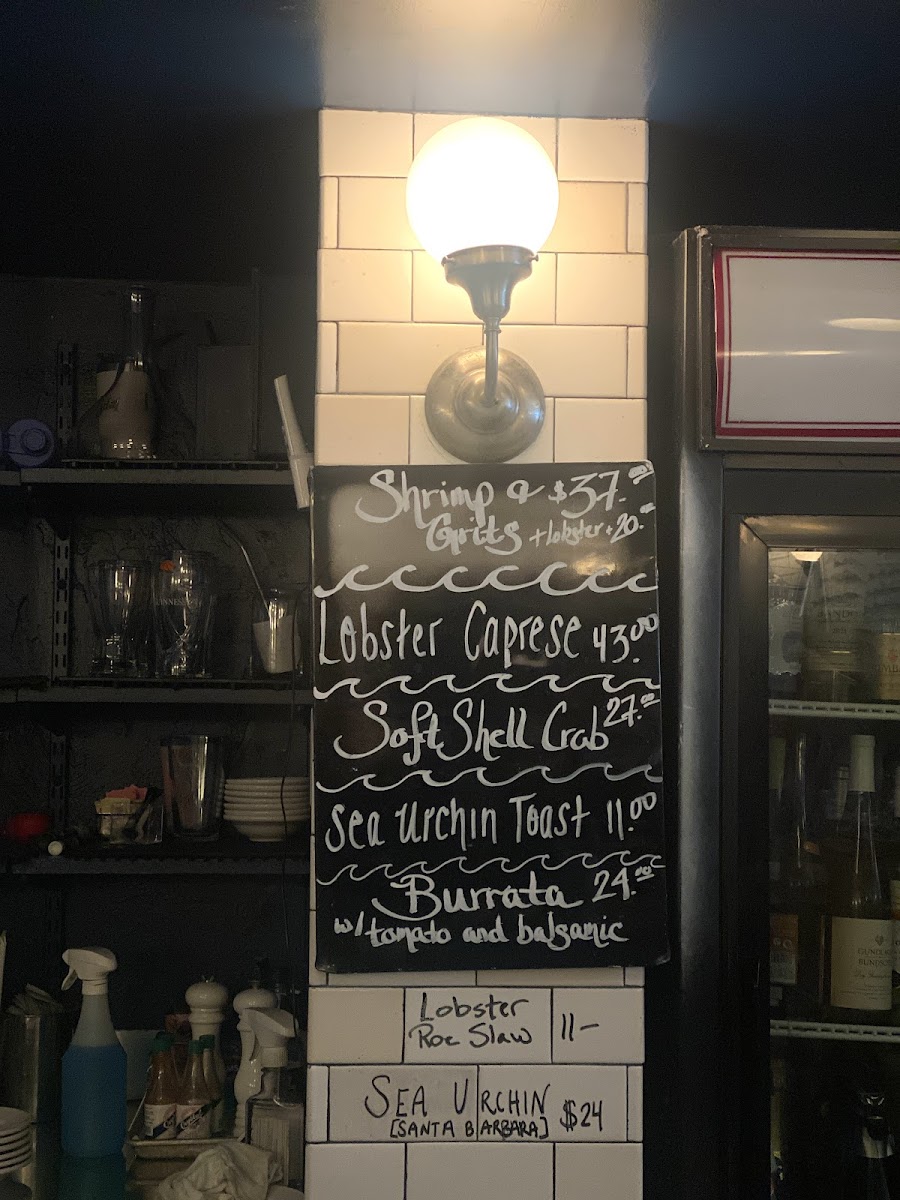 Shrimp & $37.00
Grits +lobster+20.00
Lobster Caprese 43.00
Soft Shell Crab 27.00
Sea Urchin Toast 11.00
Burrata 24.00
w/ tomato and balsamic
Lobster
Roe Slaw 11-
SEA URCHIN $24
[SANTA BARBARA]